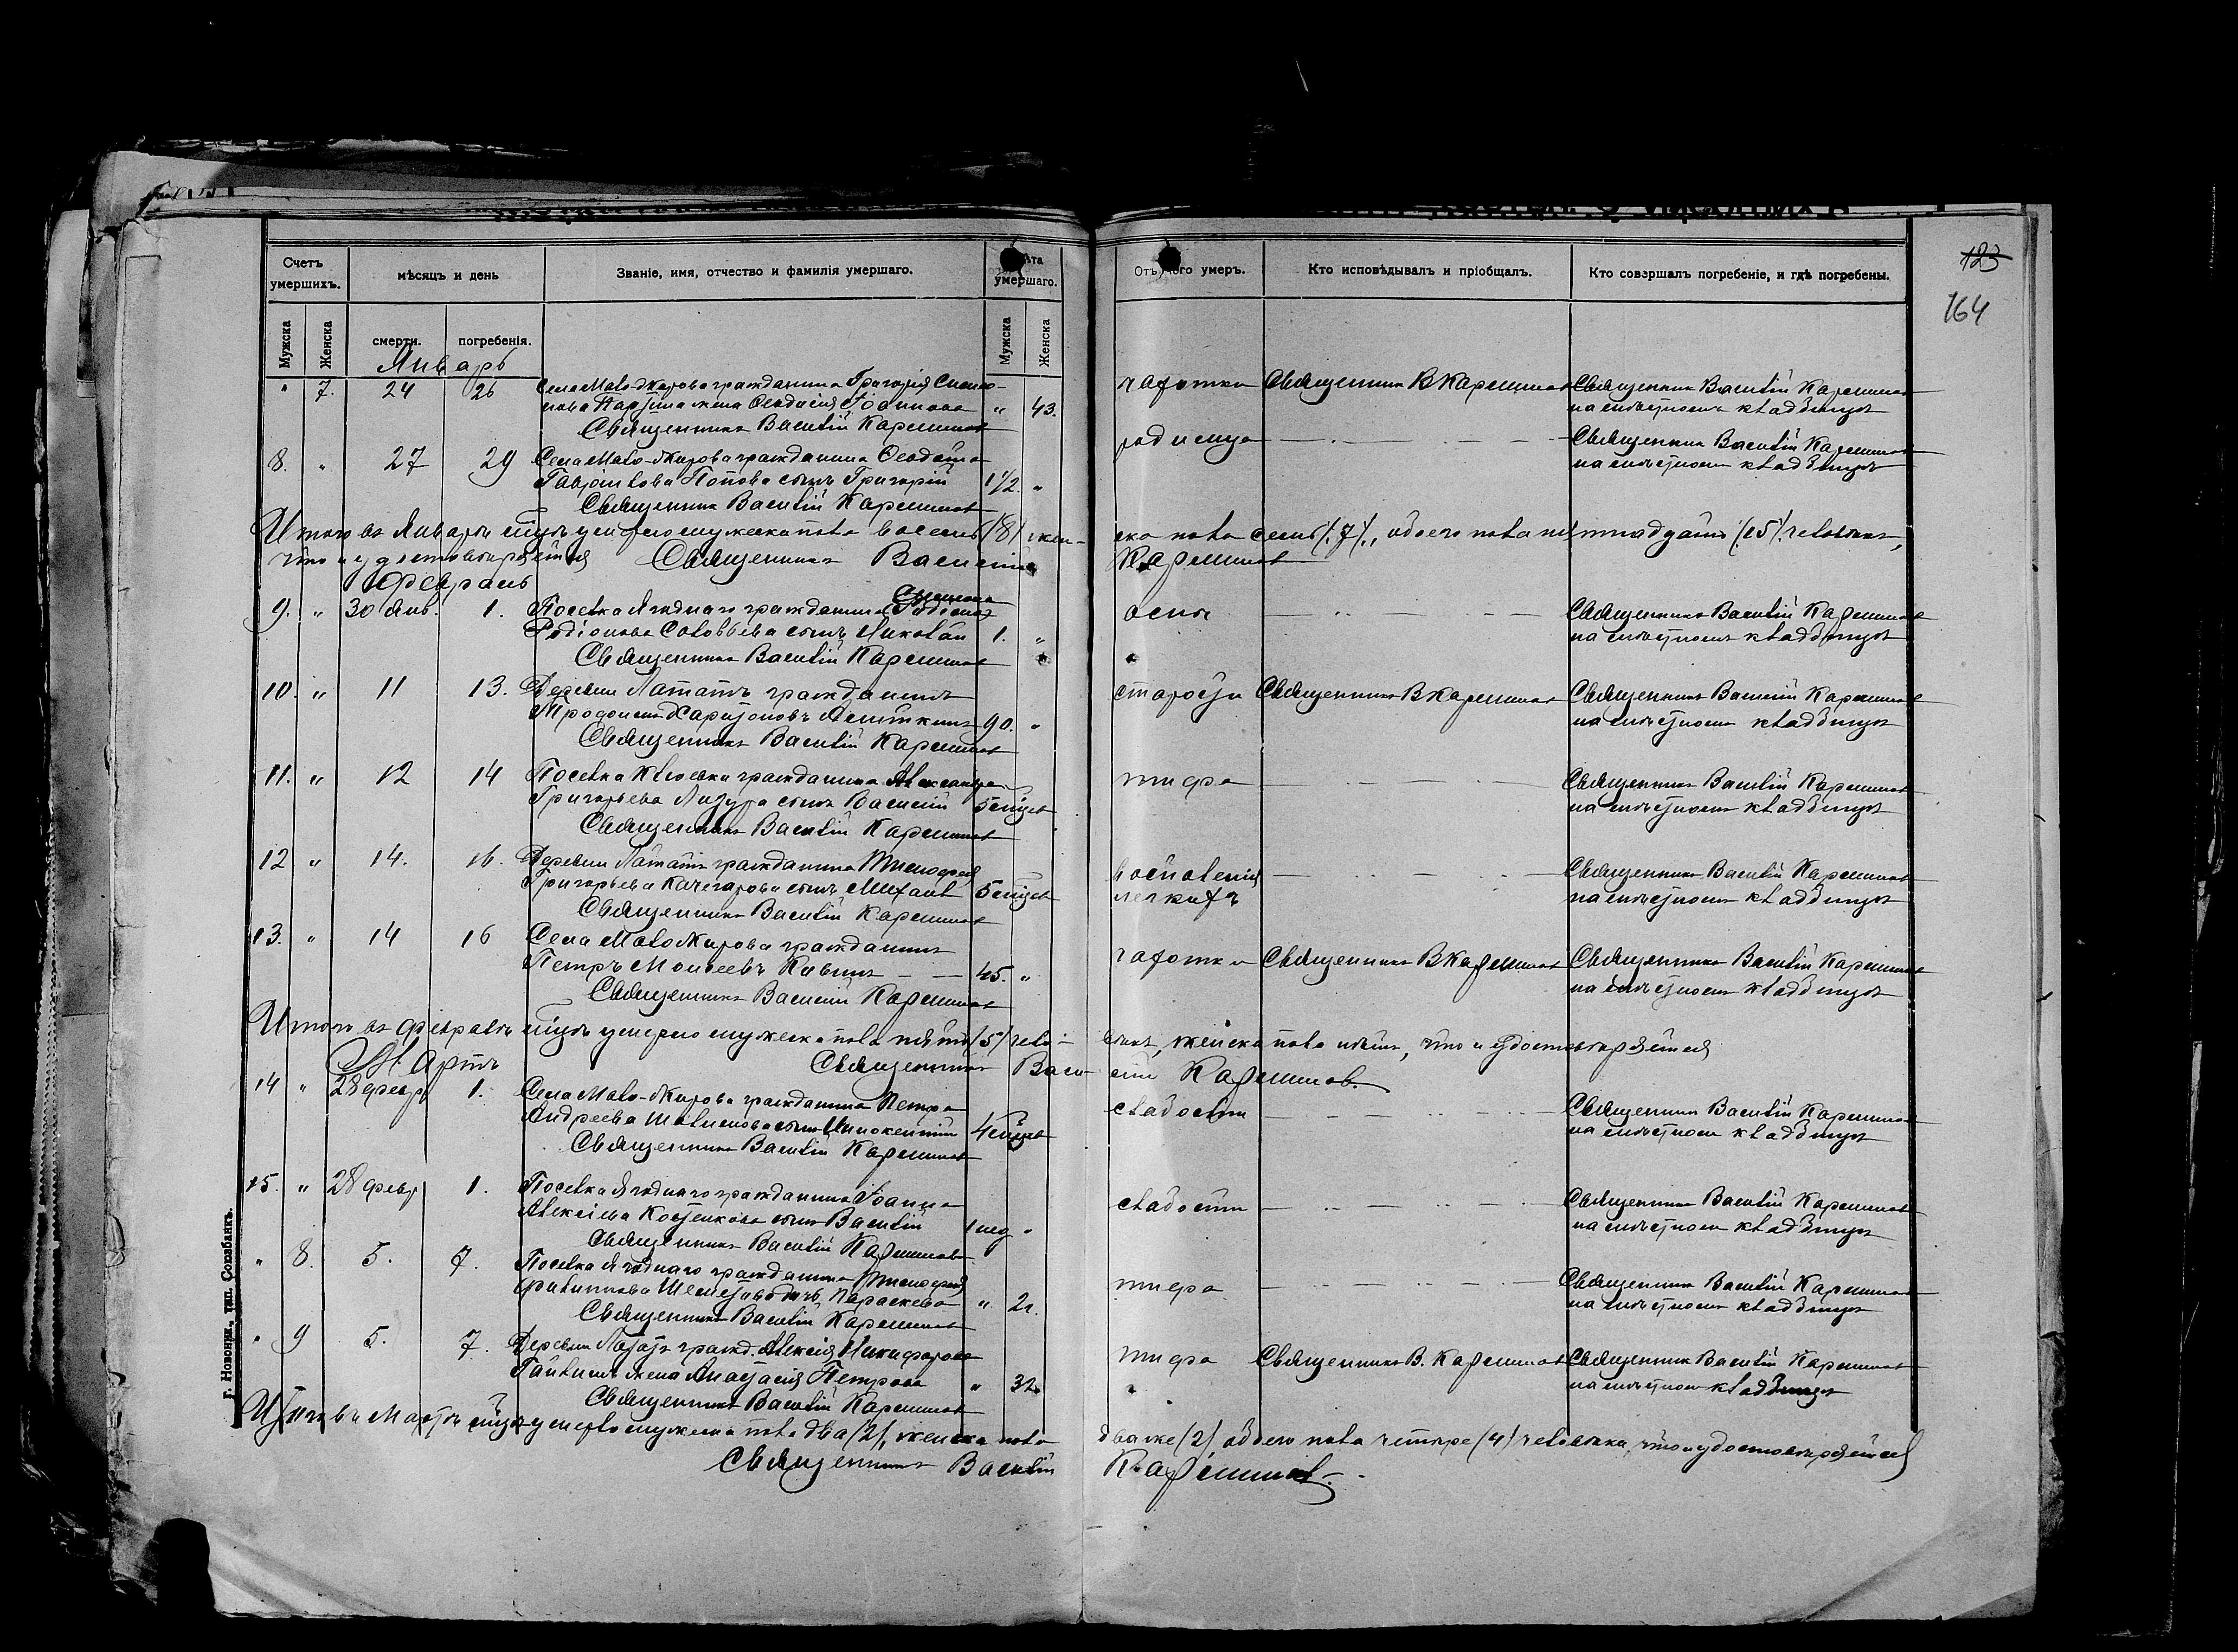 123
164
Счетъ умершихъ.
мѣсяцъ и день
Званіе, имя, отчество и фамилія умершаго.
умершаго.
Отъ чего умеръ.
Кто исповѣдывалъ и пріобщалъ.
Кто совершалъ погребеніе, и гдѣ погребены.
Мужска
Женска
смерти.
погребенія.
Мужска
Женска
Январь
" 7. 24 26 Села Мало-Жирова гражданина Григорія
жена Феодосія " 43. чахотки Священникъ В Карешинъ Священникъ Василій Карешинъ
Священникъ Василій Карешинъ на мѣстномъ кладбищѣ
8. " 27 29 Села Мало-Жирова гражданина Феодота
Гавріилова Попова сынъ Григорій 1 1/2. " родимца Священникъ Василій Карешинъ
Священникъ Василій Карешинъ на мѣстномъ кладбищѣ
Итого въ Январѣ мѣсяцѣ умерло мужеска пола восемь (8) жен-
ска пола семь (7), обоего пола пятнадцать (15) человѣкъ,
что и удостовѣряется Священникъ Василій Карешинъ
Февраль
9. " 30 Янв. 1. Поселка Ягоднаго гражданина
Родіонова Соловьева сынъ Николай 1. " оспы Священникъ Василій Карешинъ
Священникъ Василій Карешинъ на мѣстномъ кладбищѣ
10. " 11 13. Деревни гражданинъ
Харитоновъ 90. " старости Священникъ В Карешинъ Священникъ Василій Карешинъ
Священникъ Василій Карешинъ на мѣстномъ кладбищѣ
11. " 12 14 Поселка гражданина Александра
Григорьева сынъ Василій 5 мѣсяц тифа Священникъ Василій Карешинъ
Священникъ Василій Карешинъ на мѣстномъ кладбищѣ
12 " 14. 16. Деревни гражданина Тимофея
Григорьева Качегарова сынъ Михаилъ 5 мѣсяц воспаленія легкихъ Священникъ Василій Карешинъ
Священникъ Василій Карешинъ на мѣстномъ кладбищѣ
13. " 14 16 Села Мало Жирова гражданинъ
Петръ Моисеевъ 45. " чахотки Священникъ В Карешинъ Священникъ Василій Карешинъ
Священникъ Василій Карешинъ на мѣстномъ кладбищѣ
Итого въ Февралѣ мѣсяцѣ умерло мужеска пола пять (5) чело-
вѣкъ, женска пола нѣтъ, что и удостовѣряется
Священникъ Василій Карешинъ.
Мартъ
14 " 28 февр 1. Села Мало-Жирова гражданина Петра
Андреева сынъ Инокентій 4 мѣсяц слабости Священникъ Василій Карешинъ
Священникъ Василій Карешинъ на мѣстномъ кладбищѣ
15. " 28 февр 1. Поселка Ягоднаго гражданина Іоанна
Алексіева Костенкова сынъ Василій 1 нед " слабости Священникъ Василій Карешинъ
Священникъ Василій Карешинъ на мѣстномъ кладбищѣ
" 8. 5. 7. Поселка Ягоднаго гражданина Тимофея
дочь Параскева " 2 г. тифа Священникъ Василій Карешинъ
Священникъ Василій Карешинъ на мѣстномъ кладбищѣ
" 9 5. 7. Деревни гражд. Алексія Никифорова
жена Анастасія Петрова " 32 тифа Священникъ В. Карешинъ Священникъ Василій Карешинъ
Священникъ Василій Карешинъ на мѣстномъ кладбищѣ
Итого въ Мартѣ мѣсяцѣ умерло мужеска пола два (2), женска пола
два же (2) обоего пола четыре (4) человѣка, что и удостовѣряется
Священникъ Василій Карешинъ.
г. Новоник., тип. Союзбанкъ.